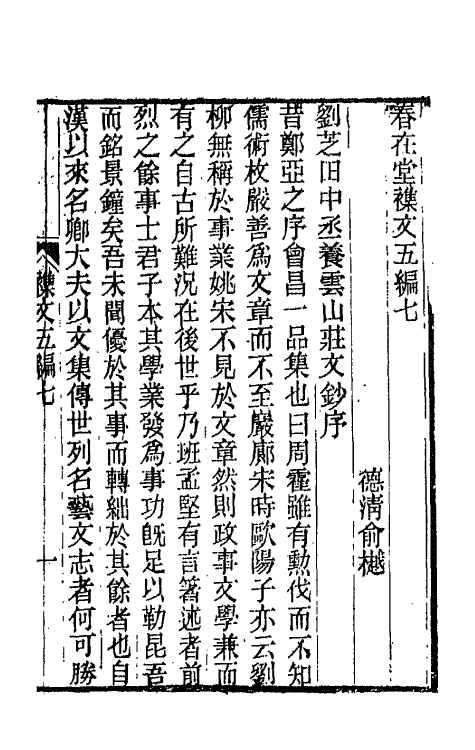 春在堂襍文五編七
德清俞樾
劉芝田中丞養雲山莊文鈔序
昔鄭亞之序會昌一品集也曰周霍雖有勲伐而不知
儒術枚嚴善爲文章而不至巖廊宋時歐陽子亦云劉
柳無稱於事業姚宋不見於文章然則政事文學兼而
有之自古所難況在後世乎乃班孟堅有言箸述者前
烈之餘事士君子本其學業發爲事功旣足以勒昆吾
而銘景鐘矣吾未聞優於其事而轉絀於其餘者也自
漢以來名卿大夫以文集傳世列名藝文志者何可勝
襍文五編七
一